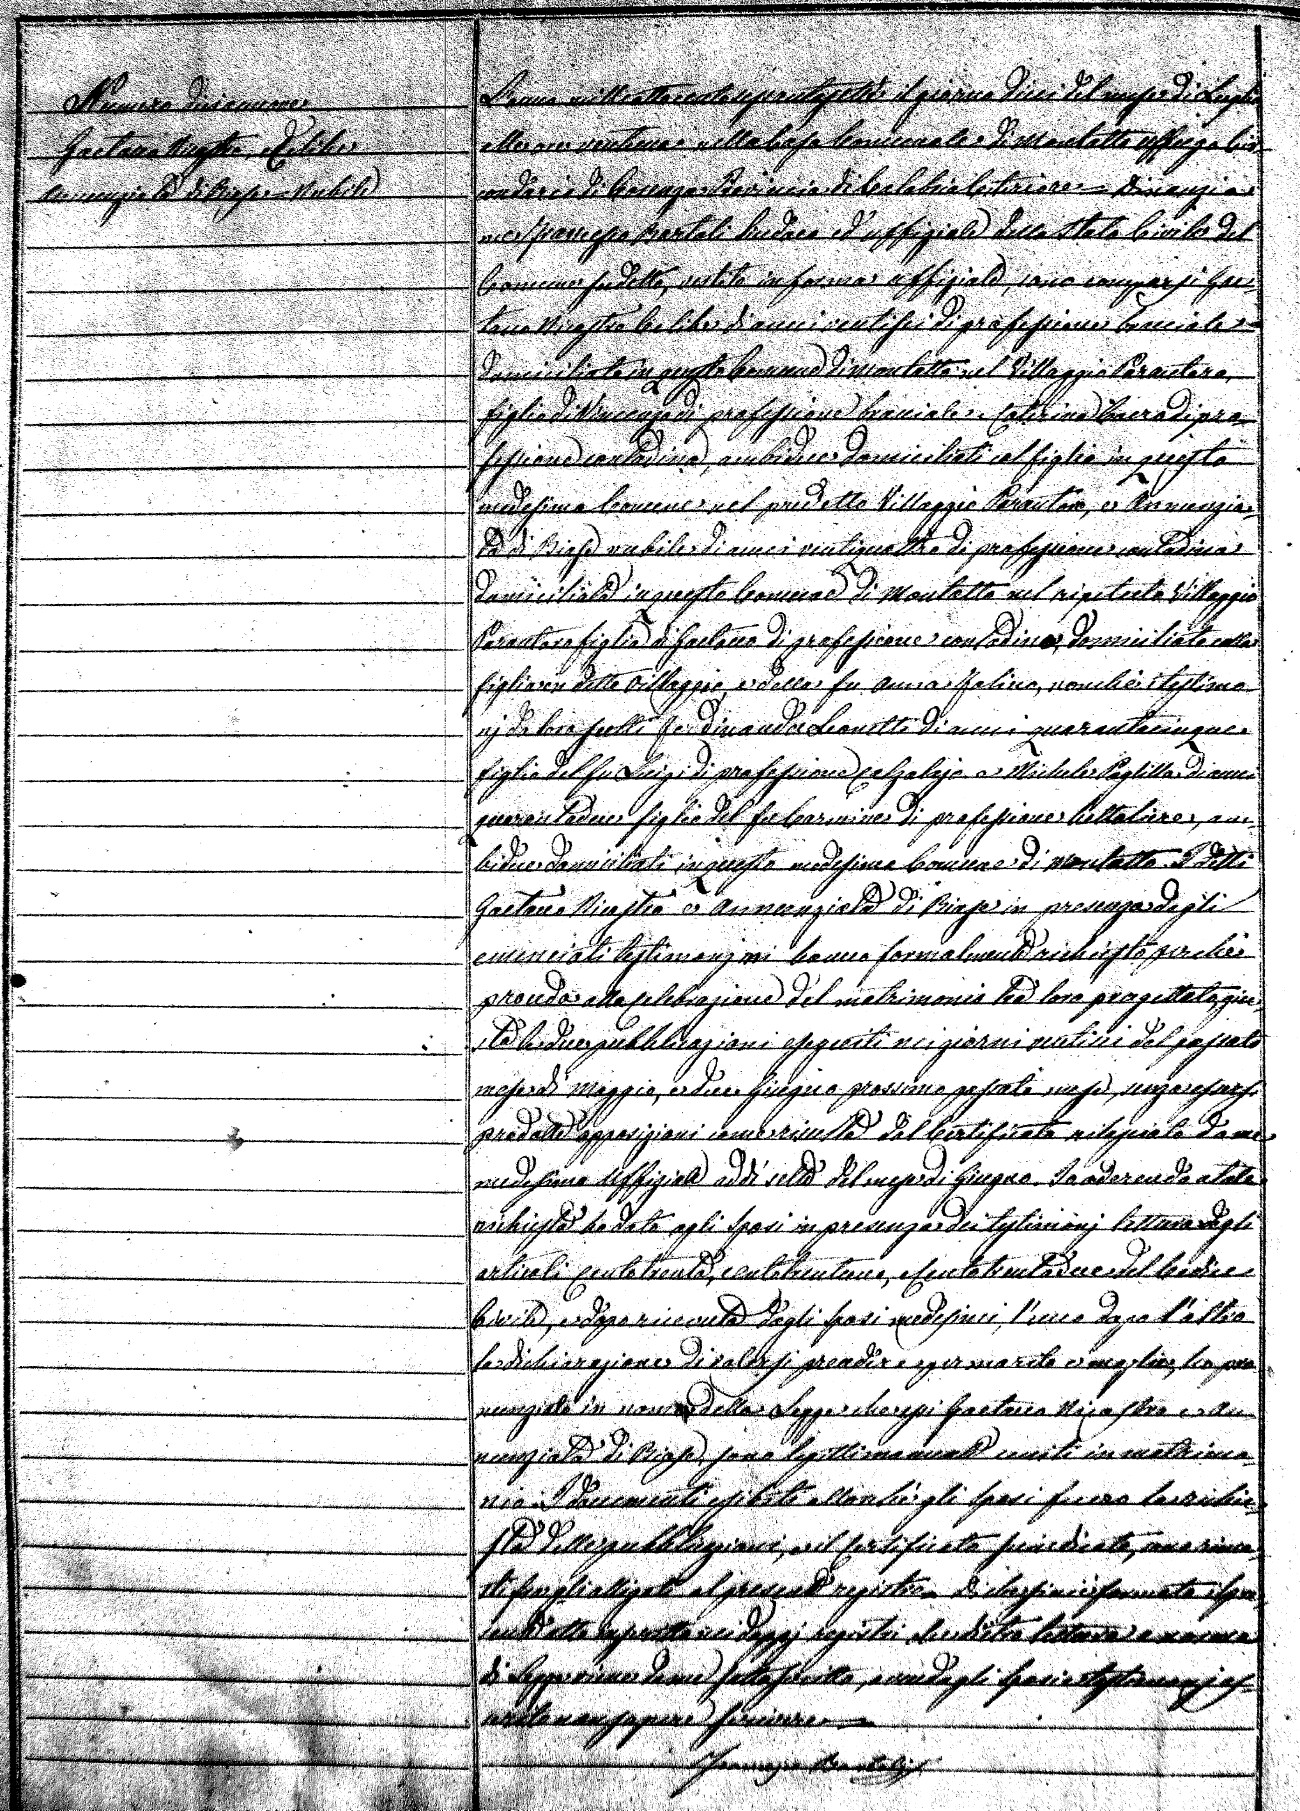 Numero diciannove
Gaetano Nicastro, Celibe
Annunziata di Biase = Nubile
L'anno mille ottocento settantasette il giorno dieci del mese di Luglio
alle ore ventuna nella Casa Comunale di Montalto Uffugo Cir-
condario di Cosenza Provincia di Calabria Citeriore = Dinanzi a
me Francesco Bartoli Sindaco ed uffiziale dello Stato Civile del
Comune sudetto, vestito in forma uffiziale, sono comparsi Gae-
tano Nicastro Celibe di anni ventisei di professione bracciale =
domiciliato in questo Comune di Montalto nel Villaggio Parantoro,
figlio di Vincenzo di professione bracciale e Caterina di pro-
fessione contadina, ambidue domiciliati col figlio in questo
medesimo Comune nel predetto Villaggio Parantoro, e Annunzia-
ta di Biase nubile di anni ventiquattro di professione contadina
domiciliata in questo Comune di Montalto nel ripetuto Villaggio
Parantoro figlia di Gaetano di professione contadino, domiciliato colla
figlia in detto Villaggio, e della fu Anna, nonché i testimo-
nj da loro scelti Ferdinando Leonetti di anni quarantacinque
figlio del fu Luigi di professione calzolajo e Michele di anni
quarantadue figlio del fu Carmine di professione, am-
bidue domiciliati in questo medesimo Comune di Montalto. I detti
Gaetano Nicastro e Annunziata di Biase in presenza degli
enunciati testimonj mi hanno formalmente richiesto perché
proceda alla celebrazione del matrimonio tra loro progettato, giu-
sta le due pubblicazioni eseguiti nei giorni ventisei del passato
mese di Maggio, e due Giugno prossimo passato mese, senza essersi
prodotte opposizioni come risulta dal Certificato rilasciato da me
medesimo Uffiziale addì sette del mese di Giugno. Io aderendo a tale
richiesta ho dato agli sposi in presenza dei testimonj lettura degli
articoli centotrenta, centotrentuno, e centotrentadue del Codice
Civile, e dopo ricevuta dagli sposi medesimi, l'uno dopo l'altro
la dichiarazione di volersi prendere per marito e moglie, ho pro-
nunziato in nome della Legge che essi Gaetano Nicastro e An-
nunziata di Biase sono legittimamente uniti in matrimo-
nio. I documenti esibiti allorché gli sposi fecero la richie-
sta delle pubblicazioni, e il Certificato, sono rima-
sti fra gli allegati al presente registro. Di che si è formato il pre-
sente atto nei doppj registri che dietro lettura a norma
di Legge viene da me sottoscritto, avendo gli sposi e testimonj as-
serito non sapere scrivere =
Francesco Bartoli